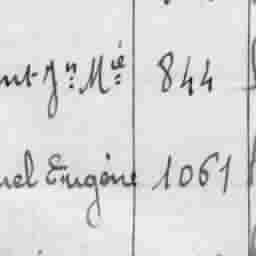 nt-Jn Mié 844
uel Eugène 1061